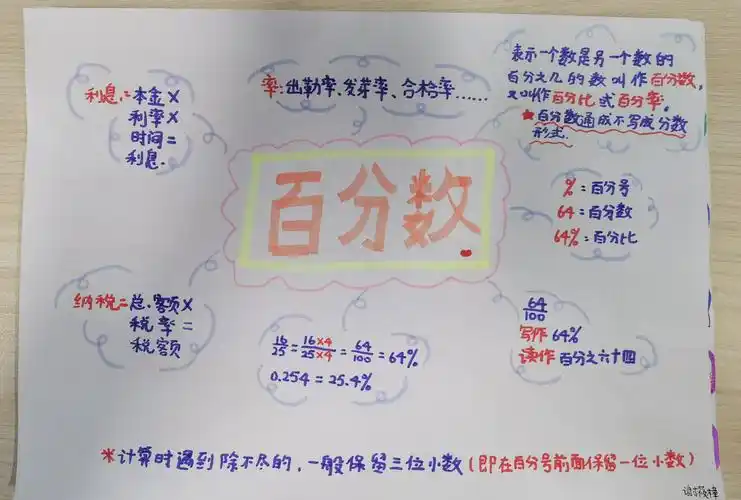 利息:=本金×
利率×
时间=
利息.
率:出勤率、发芽率、合格率……
表示一个数是另一个数的
百分之几的数叫作百分数,
又叫作百分比或百分率。
★百分数通成不写成分数
形式.
百分数
%:百分号
64:百分数
64%:百分比
纳税=总.客额×
税率=
税额
16/25=16×4/25×4=64/100=64%
0.254=25.4%
64/100
写作64%
读作百分之六十四
*计算时遇到除不尽的,一般保留三位小数(即在百分号前面保留一位小数)